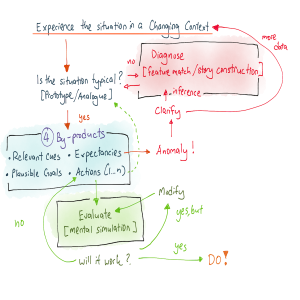 Experience the situation in a Changing Context
more data
Diagnose
[Feature match/story construction]
no
inference
Is the situation typical?
[Prototype/Analogue]
Clarify
yes
④ By-products
• Relevant Cues • Expectancies
• Plausible Goals • Actions (1...n)
Anomaly!
Modify
Evaluate
[mental simulation]
yes, but
no
yes
will it work?
DO!